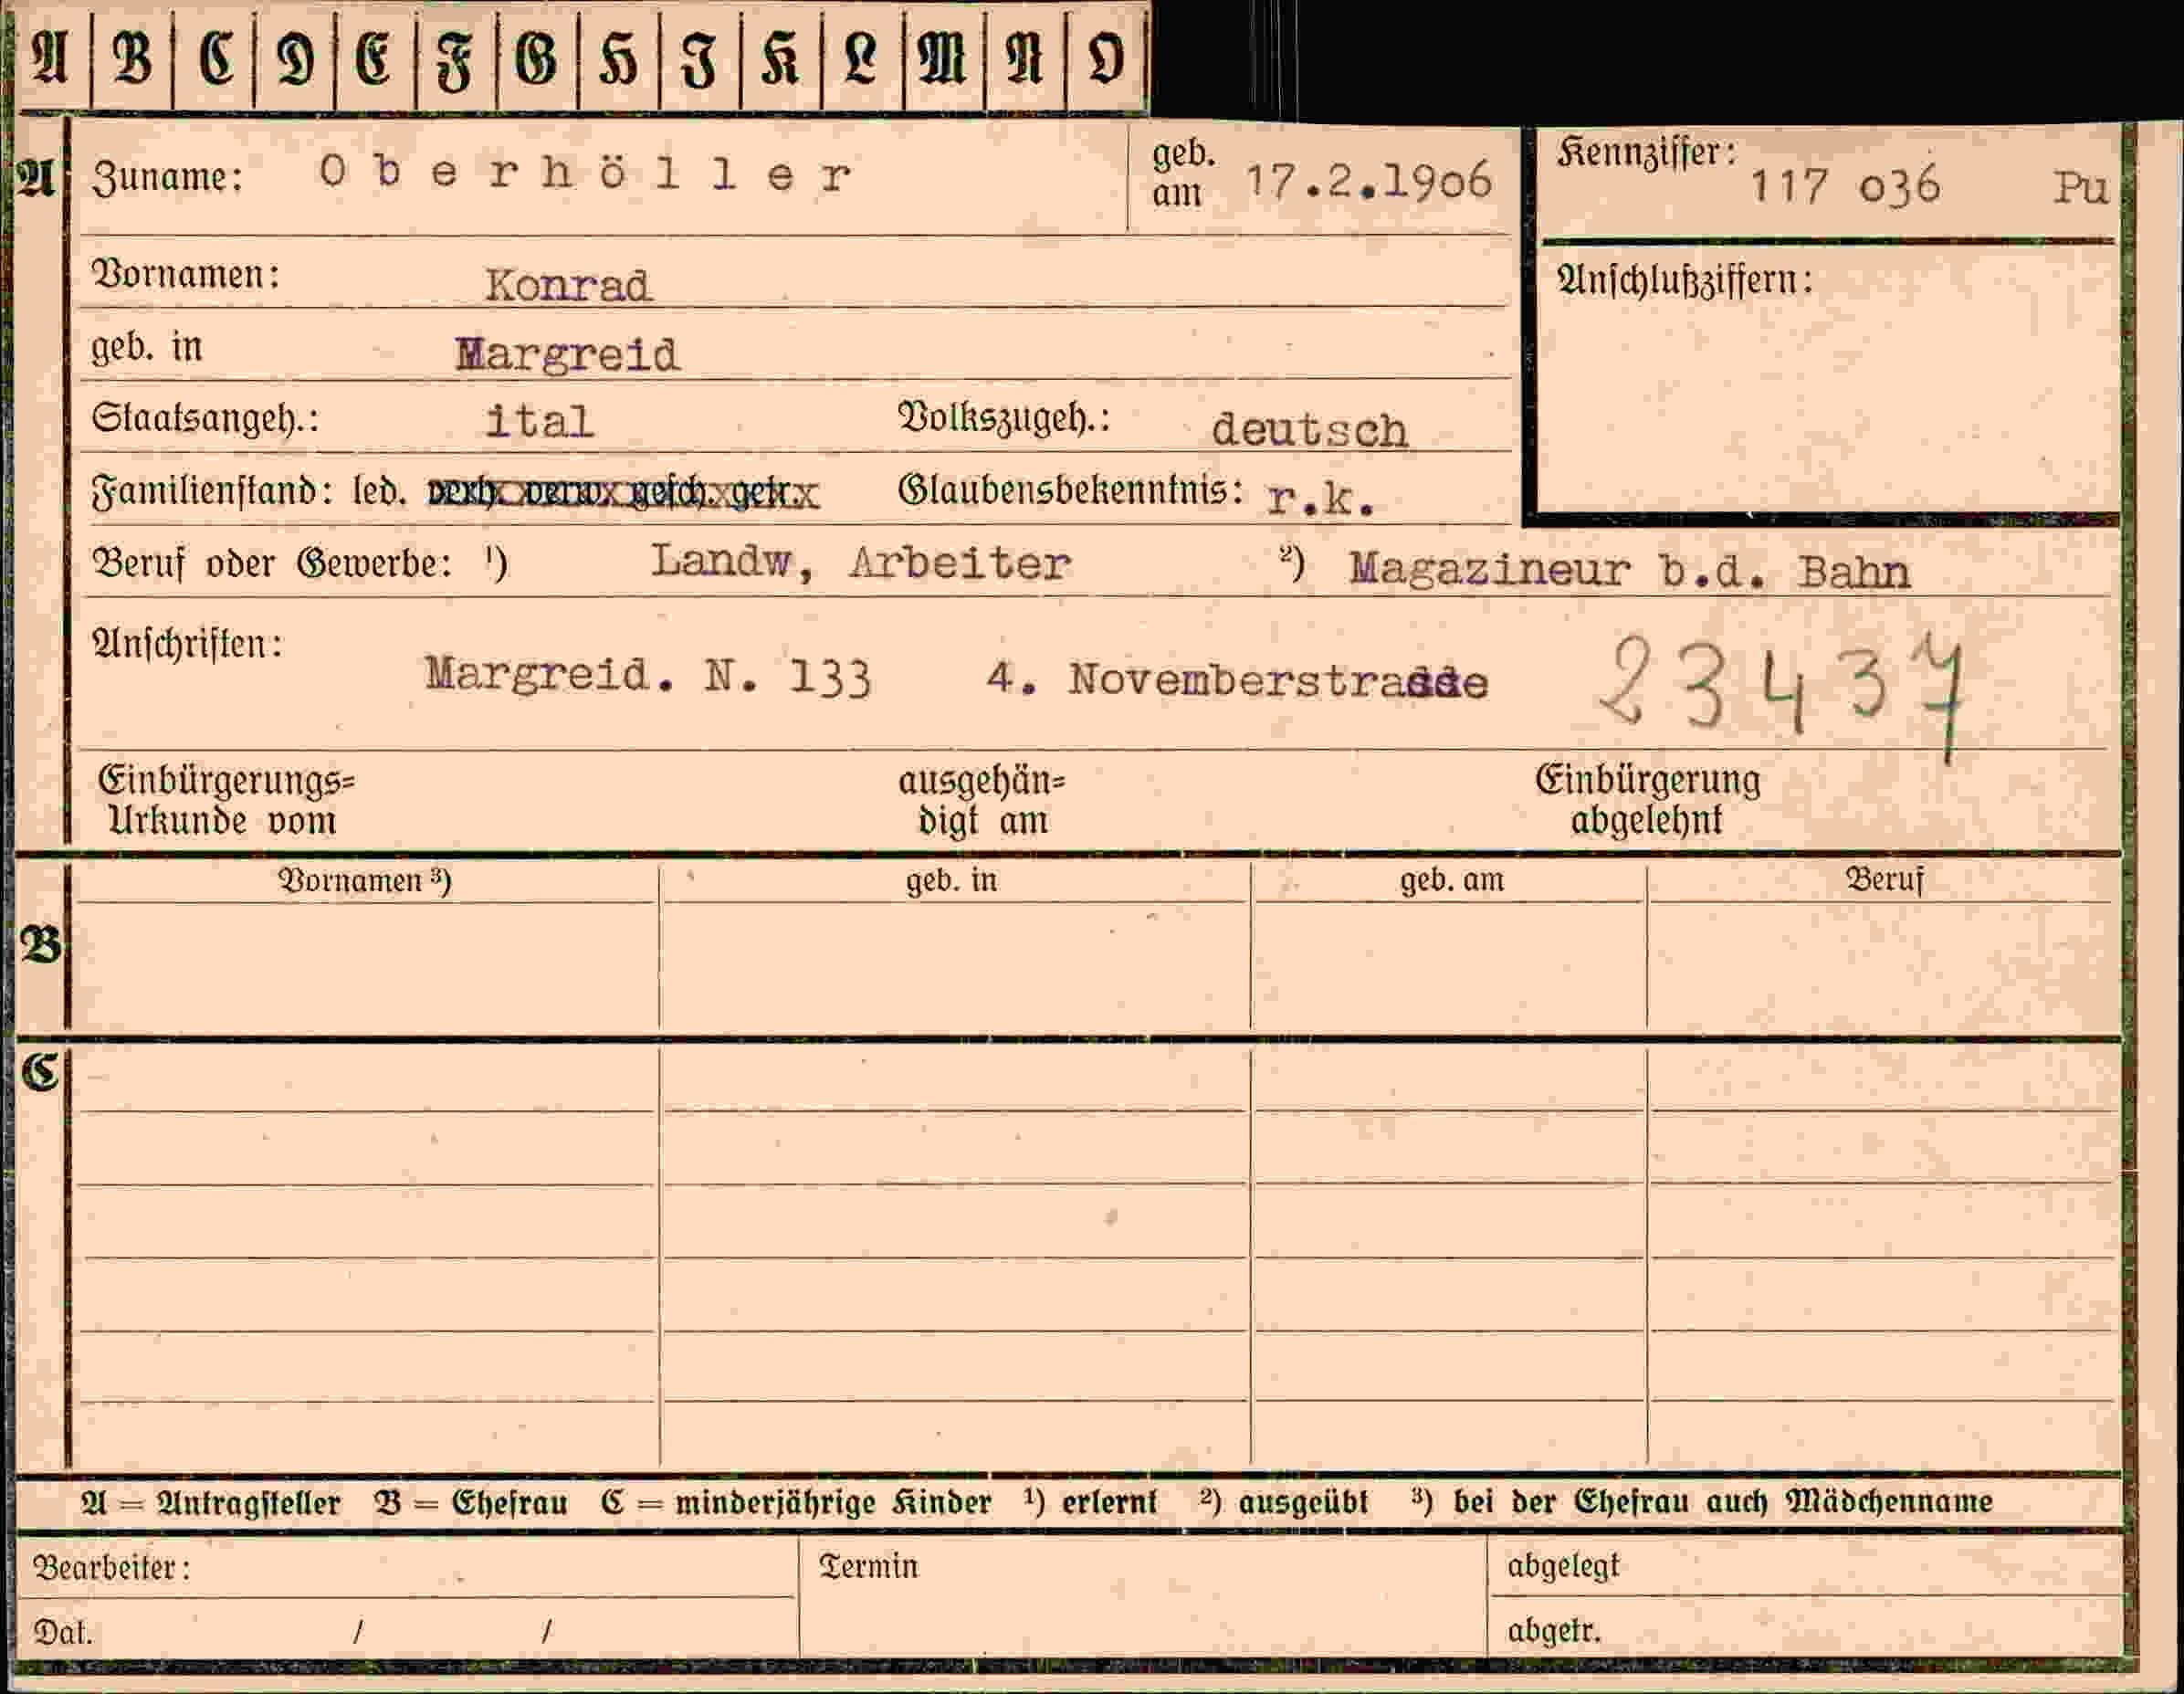 A B C D E F G H I K L M N O
A Zuname: Oberhöller geb. am 17.2.1906 Kennziffer: 117 036 Pu
Vornamen: Konrad Anschlußziffern:
geb. in Margreid
Staatsangeh.: ital Volkszugeh.: deutsch
Familienstand: led. verh. verw. gesch. getr. Glaubensbekenntnis: r.k.
Beruf oder Gewerbe: ¹) Landw, Arbeiter ²) Magazineur b.d. Bahn
Anschriften: Margreid. N. 133 4. Novemberstrasse 23437
Einbürgerungs= ausgehän= Einbürgerung
Urkunde vom digt am abgelehnt
Vornamen ³) geb. in geb. am Beruf
B
C
A = Antragsteller B = Ehefrau C = minderjährige Kinder ¹) erlernt ²) ausgeübt ³) bei der Ehefrau auch Mädchenname
Bearbeiter: Termin abgelegt
Dat. / / abgetr.